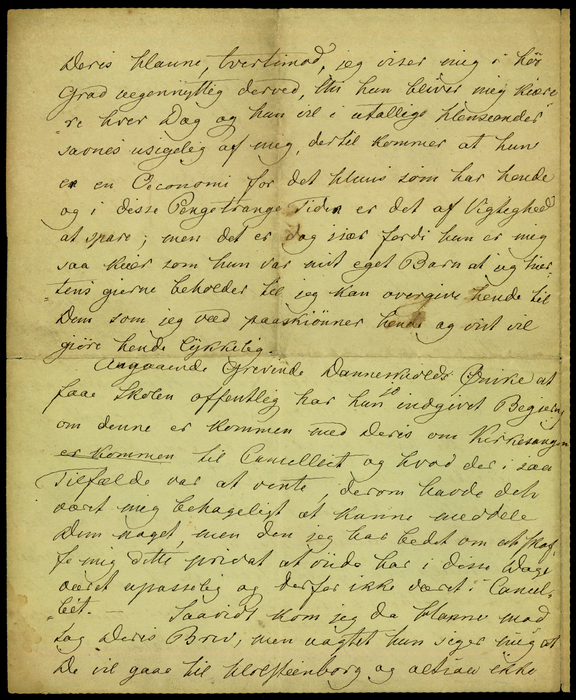 Deris Hanne, tvertimod, jeg viser mig i høi
Grad uegennyttig derved, thi hun bliver mig kiære
re hver Dag og hun vil i utallige Henseender
savnes usigelig af mig, dertil kommer at hun
er en Oeconomi for det Huus som har hende
og i disse Pengetrange Tider er det af Vigteghed
at spare; men det er dog især fordi hun er mig
saa kiær som hun var mit eget Barn at jeg hier
tens gierne beholder til jeg kan overgive hende til
Dem som jeg veed paaskiönner hende og vist vil
giøre hende lykkelig.
Angaaende Grevinde Danneskiolds Ønske at
faae Skolen offentlig har hun jo indgivet Begiering
om denne er kommen med Deris om Kirkesangen
er kommen til Cancelliet og hvad der i saa
Tilfælde var at vente, derom havde det
været mig behageligt at kunne meddele
Dem noget, men den jeg har bedt om at skaf
fe mig dette privat at vide har i disse Dage
været upasselig og derfor ikke været i Cancel
liet. — Saavidt kom jeg da Hanne mod
tog Deris Brev, men uagtet hun seger mig at
De vil gaae til Holsteinborg og altsaa ikke